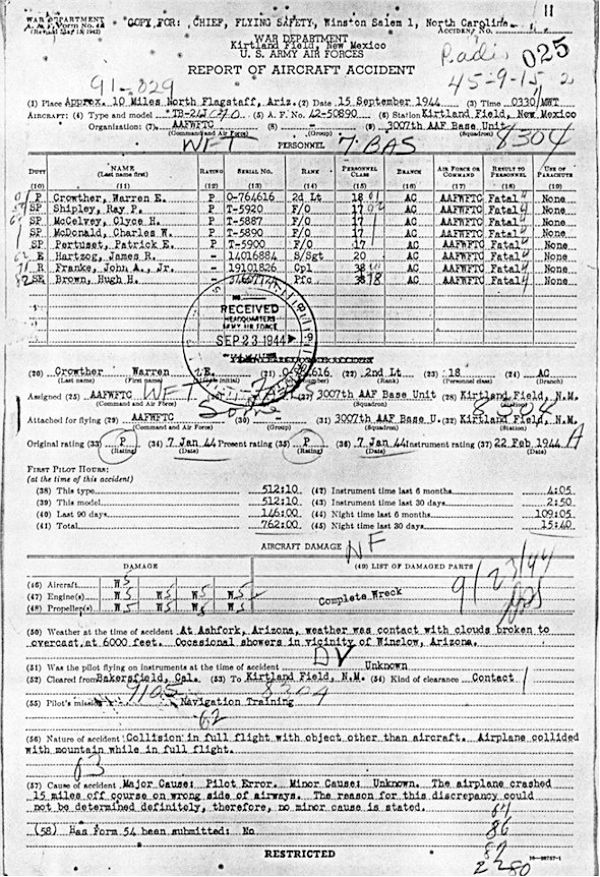 WAR DEPARTMENT
A. A. F. Form No. 14
(Revised May 15, 1942)
COPY FOR: CHIEF, FLYING SAFETY, Winston Salem 1, North Carolina
ACCIDENT NO.
11
WAR DEPARTMENT
Kirtland Field, New Mexico
U. S. ARMY AIR FORCES
REPORT OF AIRCRAFT ACCIDENT
025
45-9-15 2
91-829
(1) Place Approx. 10 Miles North Flagstaff, Ariz. (2) Date 15 September 1944 (3) Time 0330 MWT
AIRCRAFT: (4) Type and model TB-24J (5) A. F. No. 42-50890 (6) Station Kirtland Field, New Mexico
Organization: (7) AAFWFTC (8) (9) 3007th AAF Base Unit 8304
(Command and Air Force) (Group) (Squadron)
WFT PERSONNEL 7 BAS
DUTY NAME (Last name first) RATING SERIAL NO. RANK PERSONNEL CLASS BRANCH AIR FORCE OR COMMAND RESULT TO PERSONNEL USE OF PARACHUTE
(10) (11) (12) (13) (14) (15) (16) (17) (18) (19)
P Crowther, Warren E. P O-764616 2d Lt 18 01 AC AAFWFTC Fatal 4 None
SP Shipley, Ray P. P T-5920 F/O 17 02 AC AAFWFTC Fatal 4 None
SP McCelvey, Clyce H. P T-5887 F/O 17 AC AAFWFTC Fatal 4 None
SP McDonald, Charles W. P T-5890 F/O 17 AC AAFWFTC Fatal 4 None
SP Pertuset, Patrick E. P T-5900 F/O 17 AC AAFWFTC Fatal 4 None
E Hartzog, James R. - 14016884 S/Sgt 20 AC AAFWFTC Fatal 4 None
R Franke, John A., Jr. - 19101826 Cpl 38 AC AAFWFTC Fatal 4 None
SE Brown, Hugh H. - Pfc 38 18 AC AAFWFTC Fatal 4 None
RECEIVED
HEADQUARTERS
ARMY AIR FORCE
SEP 23 1944
(20) Crowther Warren E. (21) O-764616 (22) 2nd Lt (23) 18 (24) AC
(Last name) (First name) (Middle initial) (Serial number) (Rank) (Personnel class) (Branch)
Assigned (25) AAFWFTC WFT (27) 3007th AAF Base Unit (28) Kirtland Field, N.M.
(Command and Air Force) (Squadron) (Station)
8304
Attached for flying (29) AAFWFTC (30) - (31) 3007th AAF Base U. (32) Kirtland Field, N.M.
(Command and Air Force) (Group) (Squadron) (Station)
Original rating (33) P (34) 7 Jan 44 Present rating (35) P (36) 7 Jan 44 Instrument rating (37) 22 Feb 1944 A
(Rating) (Date) (Rating) (Date) (Date)
FIRST PILOT HOURS:
(at the time of this accident)
(38) This type 512:10 (42) Instrument time last 6 months 4:05
(39) This model 512:10 (43) Instrument time last 30 days 2:50
(40) Last 90 days 146:00 (44) Night time last 6 months 109:05
(41) Total 762:00 (45) Night time last 30 days 15:40
AIRCRAFT DAMAGE NF
DAMAGE (49) LIST OF DAMAGED PARTS
(46) Aircraft W5
(47) Engine(s) W5 W5 W5 W5
(48) Propeller(s) W5 W5 W5 W5
Complete Wreck
9/23/44
(50) Weather at the time of accident At Ashfork, Arizona, weather was contact with clouds broken to
overcast at 6000 feet. Occasional showers in vicinity of Winslow, Arizona.
DV
(51) Was the pilot flying on instruments at the time of accident Unknown
(52) Cleared from Bakersfield, Cal. (53) To Kirtland Field, N.M. (54) Kind of clearance Contact 1
9105 8304
(55) Pilot's mission Navigation Training
62
(56) Nature of accident Collision in full flight with object other than aircraft. Airplane collided
with mountain while in full flight.
63
(57) Cause of accident Major Cause: Pilot Error. Minor Cause: Unknown. The airplane crashed
15 miles off course on wrong side of airways. The reason for this discrepancy could
not be determined definitely, therefore, no minor cause is stated.
64
86
(58) Has Form 54 been submitted: No
RESTRICTED
2 80